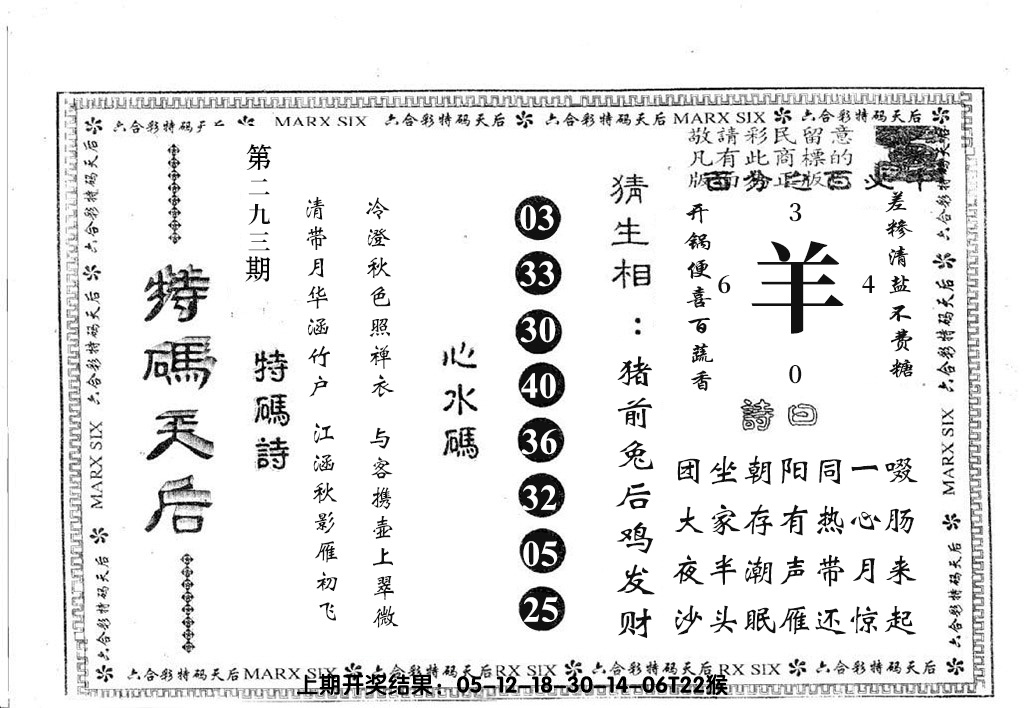 六合彩特码天后 MARX SIX 六合彩特码天后 六合彩特码天后 MARX SIX 六合彩特码天后
敬請彩民留意
凡有此商標的
版面为正版
第二九三期
特碼天后
特碼詩
冷澄秋色照禅衣 与客携壶上翠微
清带月华涵竹户 江涵秋影雁初飞
心水碼
03
33
30
40
36
32
05
25
猜生相：猪前兔后鸡发财
差糁清盐不费糖
开锅便喜百蔬香
3
6 羊 4
0
詩曰
团坐朝阳同一啜
大家存有热心肠
夜半潮声带月来
沙头眠雁还惊起
六合彩特码天后
MARX SIX
六合彩特码天后
六合彩特码天后
MARX SIX
六合彩特码天后
六合彩特码天后 MARX SIX 六合彩特码天后 RX SIX 六合彩特码天后 RX SIX 六合彩特码天后
上期开奖结果：05-12-18-30-14-06T22猴